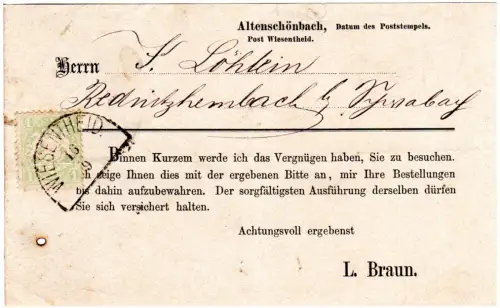 Altenschönbach, Datum des Poststempels.
Post Wiesentheid.
Herrn S. Löhlein
Rednitzhembach b/ Schwabach
WIESENTHEID
16
9
Binnen Kurzem werde ich das Vergnügen haben, Sie zu besuchen.
Ich zeige Ihnen dies mit der ergebenen Bitte an, mir Ihre Bestellungen
bis dahin aufzubewahren. Der sorgfältigsten Ausführung derselben dürfen
Sie sich versichert halten.
Achtungsvoll ergebenst
L. Braun.